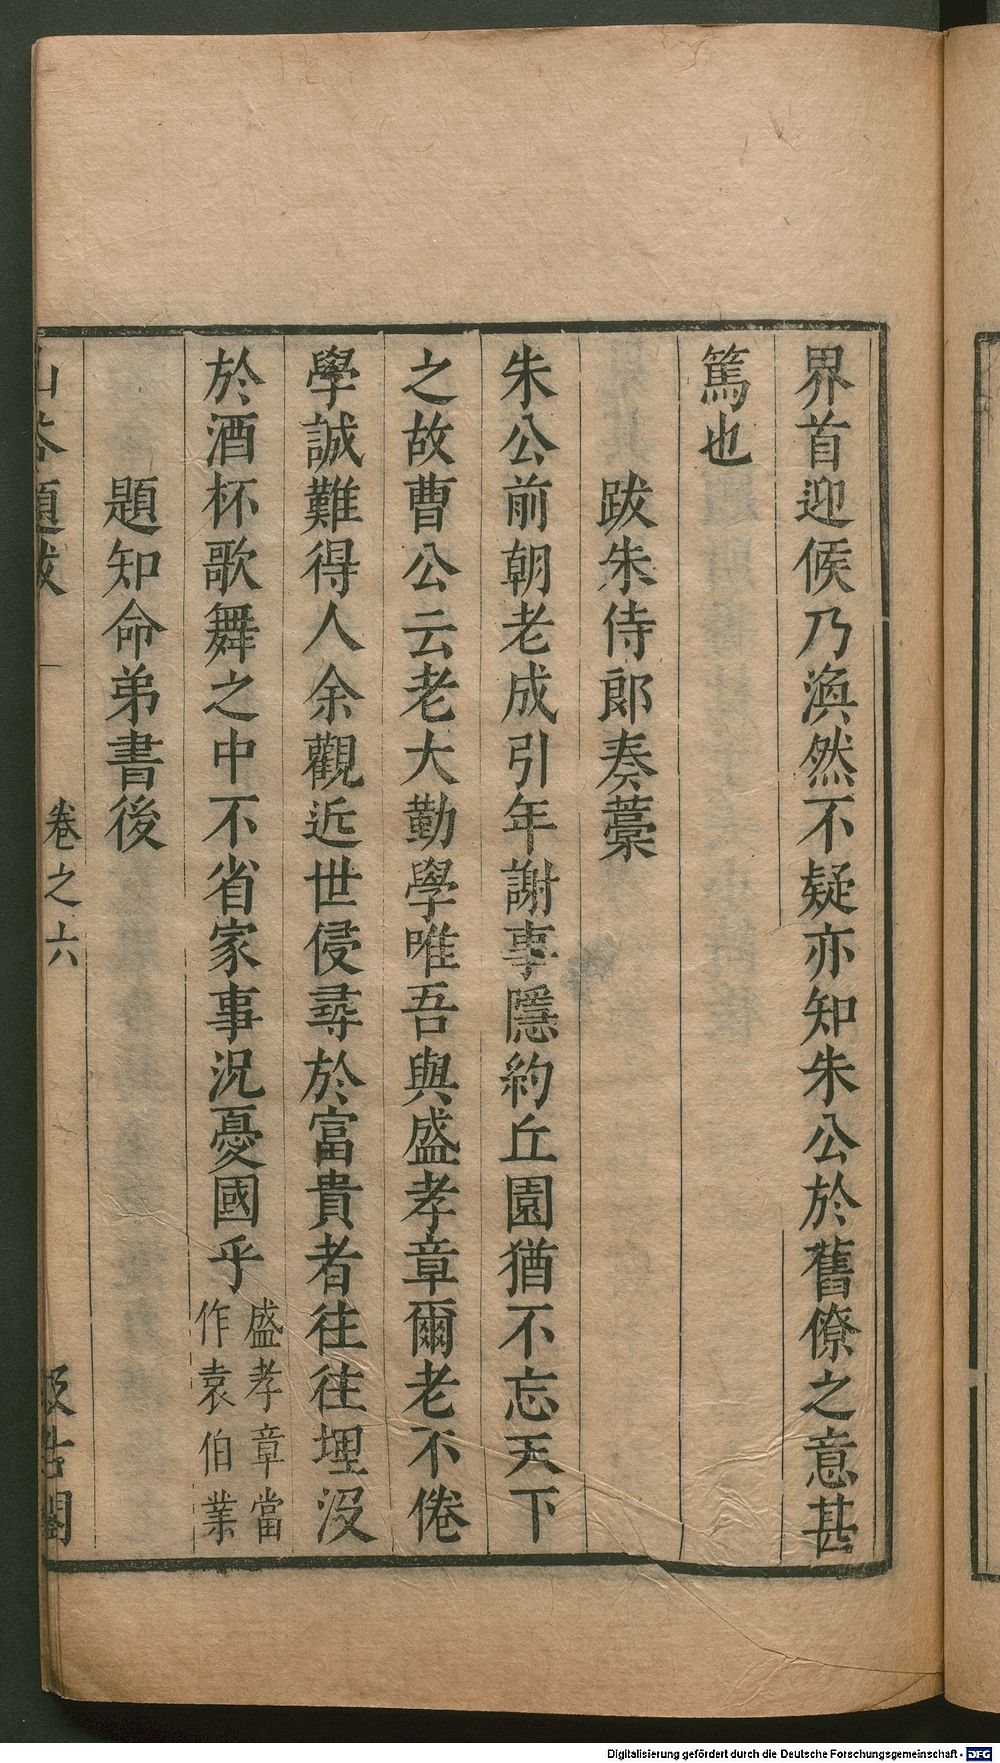 界首迎候乃渙然不疑亦知朱公於舊僚之意甚
篤也
跋朱侍郎奏藁
朱公前朝老成引年謝事隱約丘園猶不忘天下
之故曹公云老大勤學唯吾與盛孝章爾老不倦
學誠難得人余觀近世侵尋於富貴者往往埋没
於酒杯歌舞之中不省家事況憂國乎
盛孝章當
作袁伯業
題知命弟書後
山谷題跋
卷之六
汲古閣
Digitalisierung gefördert durch die Deutsche Forschungsgemeinschaft - DFG